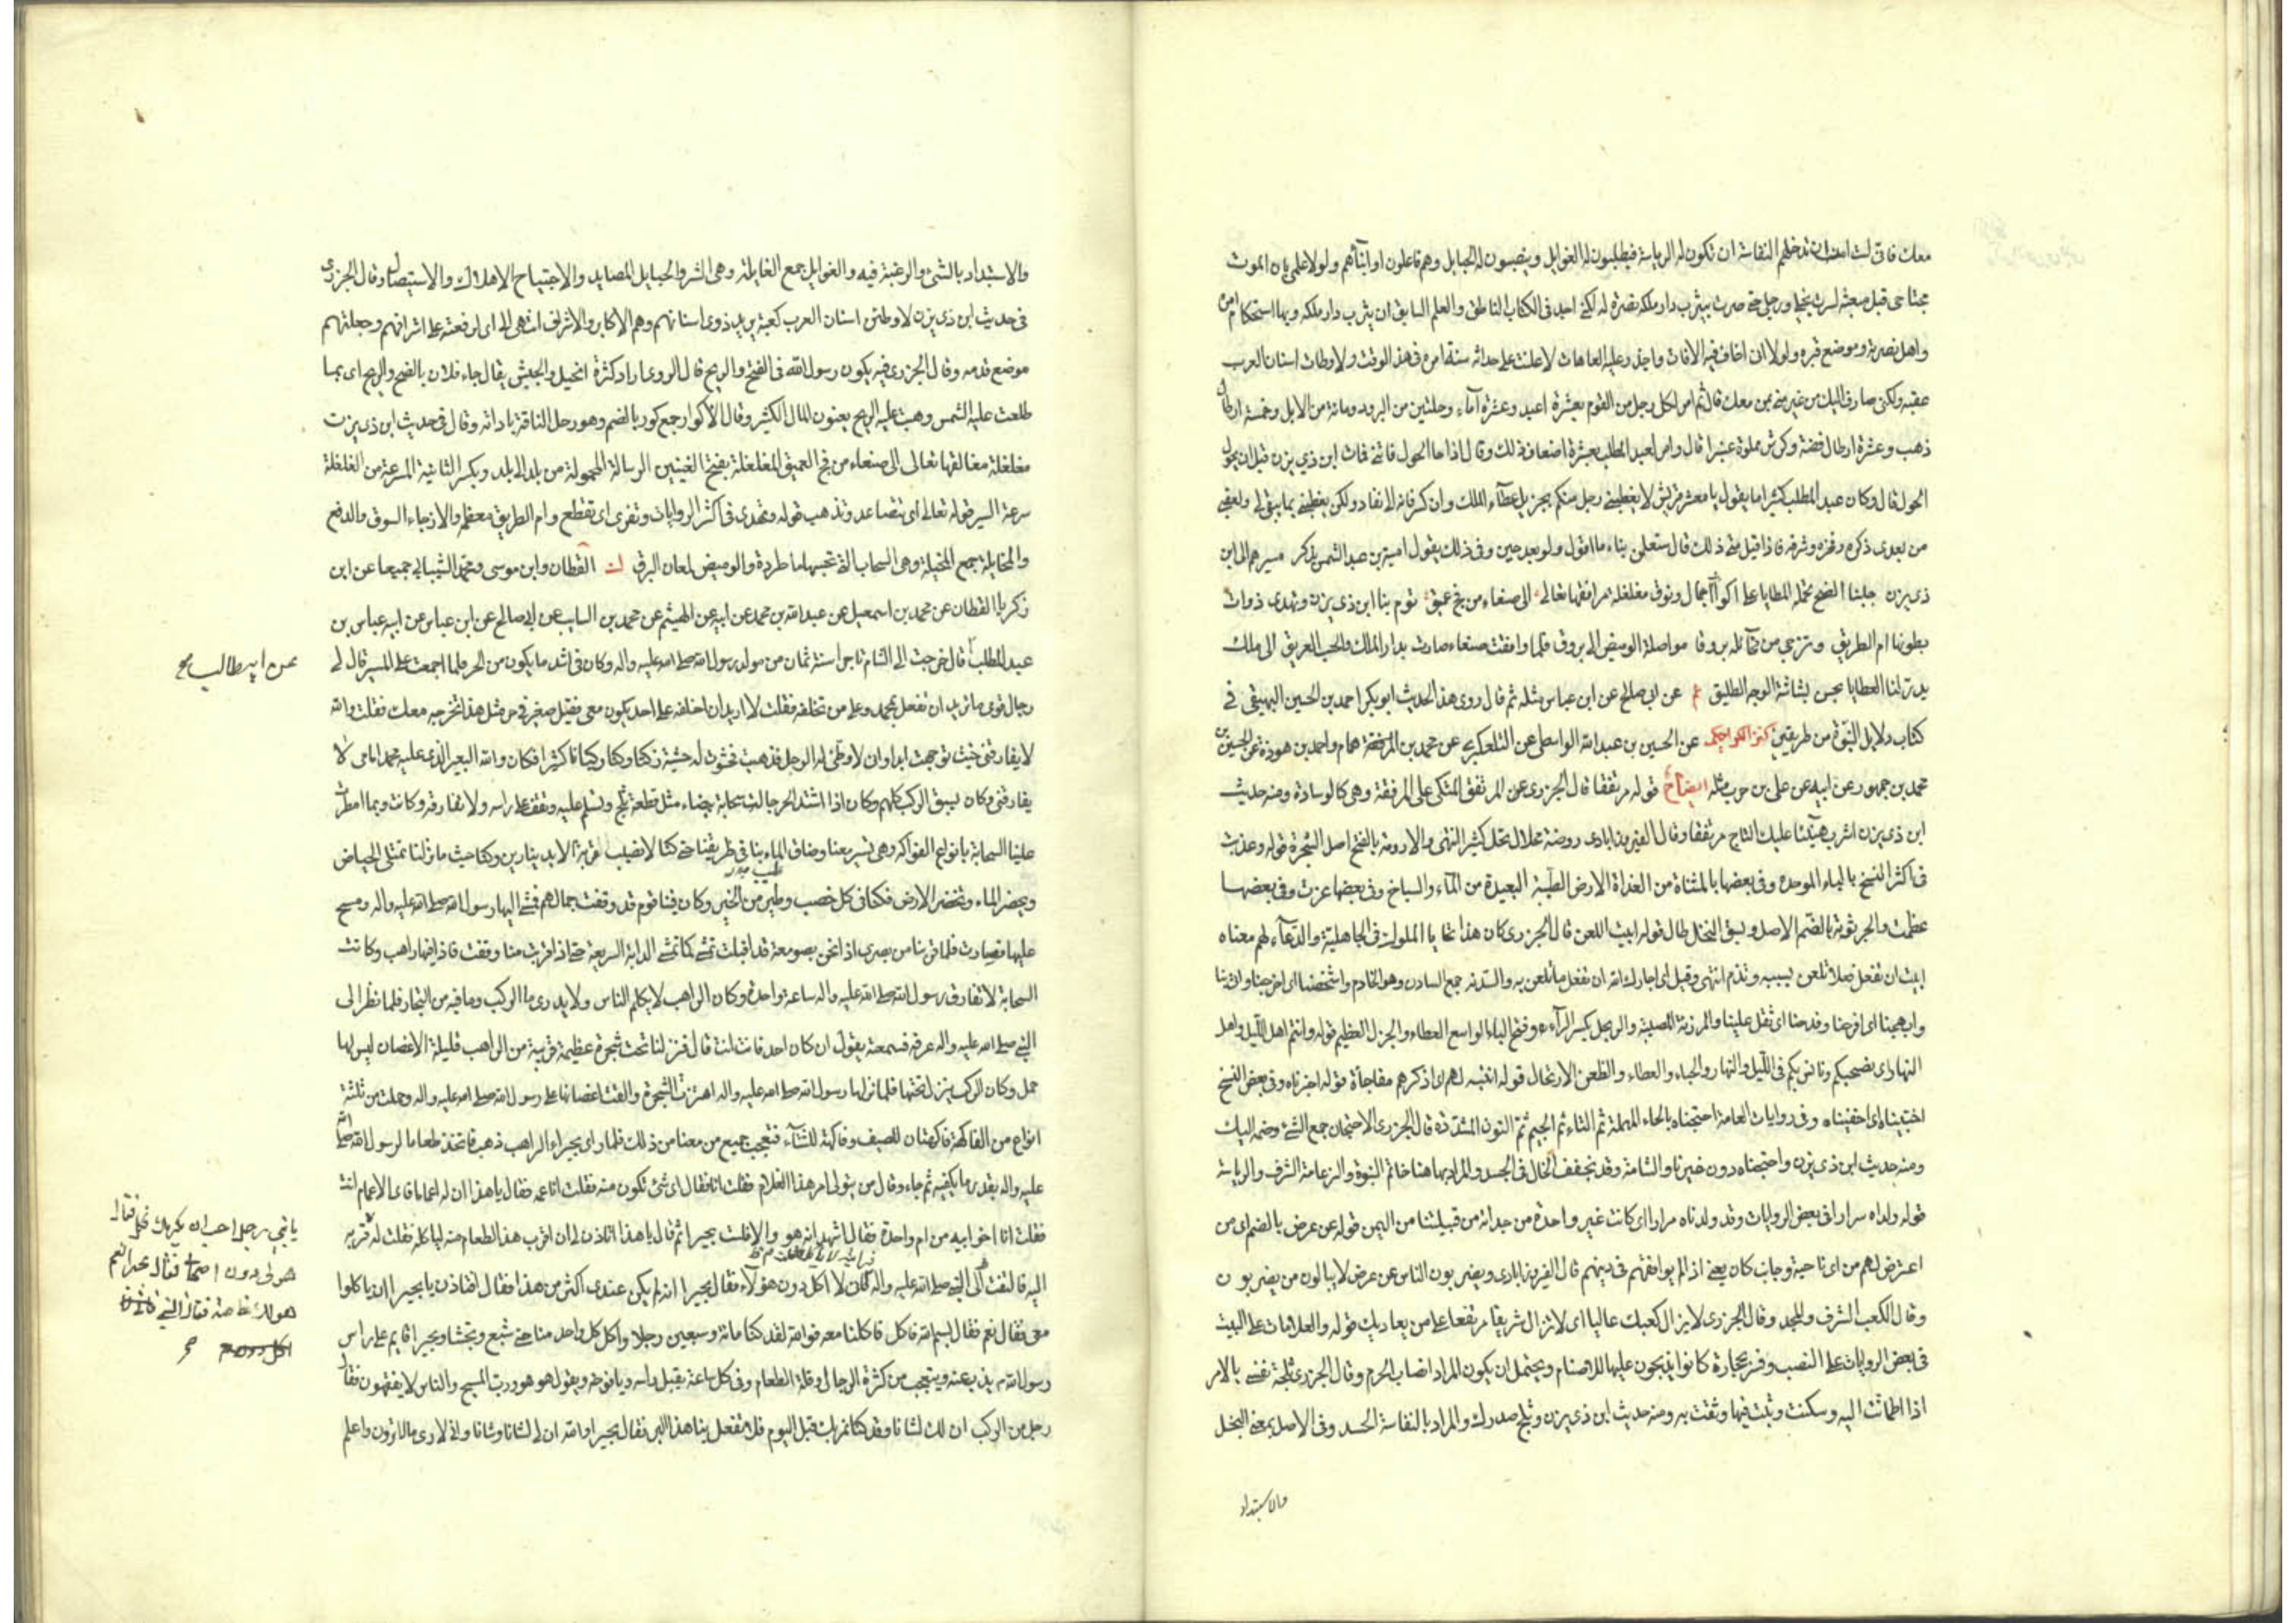 معك فانى لست امن ان تدخلهم النفاسة ان تكون له الرياسة فيطلبون له الغوايل وينصبون له الحبايل وهم فاعلون او ابناؤهم ولولا علمى بان الموت
مجتاحى قبل مبعثه لسرت بخيلى ورجلى حتى صرت بيثرب دار ملكه نصرة له لكنى اجد فى الكتاب الناطق والعلم السابق ان يثرب دار ملكه وبها استحكام امره
واهل نصرته وموضع قبره ولولا ان اخاف فيه الافات واحذر عليه العاهات لاعلنت على حداثة سنه امره فى هذا الوقت ولاوطات اسنان العرب
عقبه ولكن صارف اليك من غير تقصير منى بمن معك قال ثم امر لكل رجل من القوم بعشرة اعبد وعشرة آماء وحلتين من البرود ومائة من الابل وخمسة ارطال
ذهب وعشرة ارطال فضة وكرش مملوة عنبرا قال وامر لعبد المطلب بعشرة اضعاف ذلك وقال اذا حال الحول فاتنى فمات ابن ذى يزن قبل ان يحول
الحول قال وكان عبد المطلب كثيرا ما يقول يا معشر قريش لا يغبطنى رجل منكم بجزيل عطآء الملك وان كثر فانه الى نفاد ولكن يغبطنى بما يبقى لى ولعقبى
من بعدى ذكره وفخره وشرفه فاذا قيل متى ذلك قال ستعلمن نباء ما اقول ولو بعد حين وفى ذلك يقول امية بن عبد الشمس يذكر مسيرهم الى ابن
ذى يزن جلبنا الضح تحمله المطايا على اكوار اجمال ونوق مغلغلة مرافقها تعالى الى صنعاء من فج عميق تؤم بنا ابن ذى يزن وتهدى ذوات
بطونها ام الطريق وتزجى من مخائله بروقا مواصلة الوميض الى بروق فلما وافقت صنعاء صارت بدار الملك والحسب العريق الى ملك
يدر لنا العطايا بحسن بشاشة الوجه الطليق عم عن ابى صالح عن ابن عباس مثله ثم قال روى هذا الحديث ابو بكر احمد بن الحسين البيهقى فى
كتاب دلايل النبوة من طريقين كنز الكراجكى عن الحسين بن عبد الله الواسطى عن التلعكبرى عن محمد بن همام واحمد بن هوذة عن الحسن بن
محمد بن جمهور عن ابيه عن على بن حرب مثله ايضاح قوله مرتفقا قال الجزرى عن المرتفق المتكى على المرفقة وهى كالوسادة ومنه حديث
ابن ذى يزن اشرب هنيئا عليك التاج مرتفقا وقال الفيروزابادى روضة محلال تحل كثيرا انتهى والارومة بالفتح اصل الشجرة قوله وعذبت
فى اكثر النسخ بالباء الموحدة وفى بعضها بالمثناة من العذاة الارض الطيبة البعيدة من المآء والسباخ وفى بعضها عزت وفى بعضها
عظمت والجرثومة بالضم الاصل وبسق النخل طال قوله ابيت اللعن قال الجزرى كان هذا تحايا الملوك فى الجاهلية والدعآء لهم معناه
ابيت ان تفعل فعلا تلعن بسببه وتذم انتهى وقيل اى اجارك الله ان تفعل ما تلعن به والسدنة جمع السادن وهو الخادم واشخصنا اى اخرجنا واتى بنا
وابهجنا اى افرحنا وفدحنا اى ثقل علينا والمرزئة المصيبة والربحل بكسر الرآء وفتح الباء الواسع العطاء والجزل العظيم قوله وانتم اهل الليل واهل
النهار اى نصحبكم ونانس بكم فى الليل والنهار والحباء والعطاء والظعن الارتحال قوله انتبه لهم اى ذكرهم مفاجأة قوله اخبرناه وفى بعض النسخ
اختبيناه اى اخفيناه وفى روايات العامة احتجناه بالحاء المهملة ثم التاء ثم الجيم ثم النون المشددة قال الجزرى الاحتجان جمع الشئ وضمه اليك
ومنه حديث ابن ذى يزن واحتجناه دون غيرنا والشامة وقد يخفف الخال فى الجسد والمراد بها هنا خاتم النبوة والزعامة الشرف والرياسة
قوله ولداه سرارا فى بعض الروايات وقد ولدناه مرارا اى كانت غير واحدة من جداته من قبيلتنا من اليمن قوله عن عرض بالضم اى من
اعترض لهم من اى ناحية وجانب كان يعنى اذا لم يوافقهم فى دينهم قال الفيروزابادى ويضربون الناس عن عرض لا يبالون من يضربون
وقال الكعب الشرف والمجد وقال الجزرى لا يزال كعبك عاليا اى لا تزال شريفا مرتفعا على من يعاديك قوله والعلامات على البيت
فى بعض الروايات على النصب وفسر بحجارة كانوا يذبحون عليها للاصنام ويحتمل ان يكون المراد انصاب الحرم وقال الجزرى ثلجت نفسى بالامر
اذا اطمانت اليه وسكنت وثبت فيها ووثقت به ومنه حديث ابن ذى يزن وثلج صدرك والمراد بالنفاسة الحسد وفى الاصل بمعنى البخل
والاستبداد
والاستبداد بالشئ والرغبة فيه والغوايل جمع الغايلة وهى الشر والحبايل المصايد والاجتياح الاهلاك والاستيصال وقال الجزرى
فى حديث ابن ذى يزن لاوطئن اسنان العرب كعبه يريد ذوى اسنانهم وهم الاكابر والاشراف انتهى اى لرفعته على اشرافهم وجعلتهم
موضع قدمه وقال الجزرى فيه يكون رسول الله فى الضح والريح قال الهروى اراد كثرة الخيل والجيش يقال جاء فلان بالضح والريح اى بما
طلعت عليه الشمس وهبت عليه الريح يعنون المال الكثير وقال الاكوار جمع كور بالضم وهو رحل الناقة باداته وقال فى حديث ابن ذى يزن
مغلغلة مغالقها تعالى الى صنعاء من فج العميق المغلغلة بفتح الغينين الرسالة المحمولة من بلد الى بلد وبكسر الثانية المسرعة من الغلغلة
سرعة السير قوله تعالى اى تتصاعد وتذهب قوله وتهدى فى اكثر الروايات وتفرى اى تقطع وام الطريق معظمه والازجاء السوق والدفع
والمخايلة جمع المخيلة وهى السحاب التى تحسبها ماطرة والوميض لمعان البرق ك القطان وابن موسى ومحمد الشيبانى جميعا عن ابن
زكريا القطان عن محمد بن اسمعيل عن عبد الله بن محمد عن ابيه عن الهيثم عن محمد بن السايب عن ابى صالح عن ابن عباس عن ابيه عباس بن
عبد المطلب قال خرجت الى الشام تاجرا سنة ثمان من مولد رسول الله صلى الله عليه واله وكان فى اشد ما يكون من الحر فلما اجمعت على المسير قال لى
عن ابى طالب صح
رجال قومى ما تريد ان تفعل بمحمد وعلى من تخلفه فقلت لا اريد ان اخلفه على احد يكون معى فقيل صغير فى حر مثل هذا تخرجه معك فقلت والله
لا يفارقنى حيث توجهت ابدا وانى لاوطئ له الرحل فذهبت فحشوت له حشية وكنا ركبانا كثيرا فكان والله البعير الذى عليه محمد امامى لا
يفارقنى وكان يسبق الركب كلهم وكان اذا اشتد الحر جائت سحابة بيضاء مثل قطعة ثلج وتسلم عليه وتقف على راسه ولا تفارقه وكانت ربما امطرت
علينا السحابة بانواع الفواكه وهى تسير معنا وضاق الماء بنا فى طريقنا حتى كنا لا نصيب قربة الا بدينارين وكنا حيث ما نزلنا تمتلى الحياض
ويكثر الماء وتخضر الارض فكنا فى كل خصب وطيب من الخير وكان فينا قوم قد وقفت جمالهم فمشى اليها رسول الله صلى الله عليه واله ومسح
عليها فسارت فلما قربنا من بصرى اذا نحن بصومعة قد اقبلت تمشى كما تمشى الدابة السريعة حتى اذا قربت منا وقفت فاذا فيها راهب وكانت
السحابة لا تفارق رسول الله صلى الله عليه واله ساعة واحدة وكان الراهب لا يكلم الناس ولا يدرى ما الركب وما فيه من التجار فلما نظر الى
النبى صلى الله عليه واله عرفه فسمعته يقول ان كان احد فانت انت قال فنزلنا تحت شجرة عظيمة قريبة من الراهب قليلة الاغصان ليس لها
حمل وكان الركب ينزل تحتها فلما نزلها رسول الله صلى الله عليه واله اهتزت الشجرة والقت اغصانها على رسول الله صلى الله عليه واله وحملت من ثلثة
انواع من الفاكهة فاكهتان للصيف وفاكهة للشتآء فتعجب جميع من معنا من ذلك فلما راى بحيراء الراهب ذهب فاتخذ طعاما لرسول الله صلى الله
عليه واله بقدر ما يكفيه ثم جاء وقال من يتولى امر هذا الغلام فقلت انا فقال اى شئ تكون منه فقلت انا عمه فقال يا هذا ان له اعماما فاى الاعمام انت
فقلت انا اخو ابيه من ام واحدة فقال اشهد انه هو والا فلست بحيرا ثم قال يا هذا اتاذن لى ان اقرب هذا الطعام منه لياكله فقلت له قربه
اليه فالتفت الى النبى صلى الله عليه واله لا اكل دون هؤلاء فقال بحيرا انه لم يكن عندى اكثر من هذا فقال افتاذن يا بحيرا ان ياكلوا
معى فقال نعم فقال بسم الله فاكل فاكلنا معه فوالله لقد كنا مائة وسبعين رجلا واكل كل واحد منا حتى شبع وتجشا وبحيرا قايم على راس
رسول الله يذب عنه ويتعجب من كثرة الرجال وقلة الطعام وفى كل ساعة يقبل راسه ويافوخه ويقول هو هو ورب المسيح والناس لا يفقهون فقال
رجل من الركب ان لك لشانا وقد كنا نمر بك قبل اليوم فلا تفعل بنا هذا البر فقال بحيرا والله ان لى لشانا وشانا وانى لارى ما لا ترون واعلم
يا بنى رجل احب ان يكرمك فكل فقال
هو لى دون اصحابى فقال بحيرا نعم
هو لك خاصة فقال النبى فانى